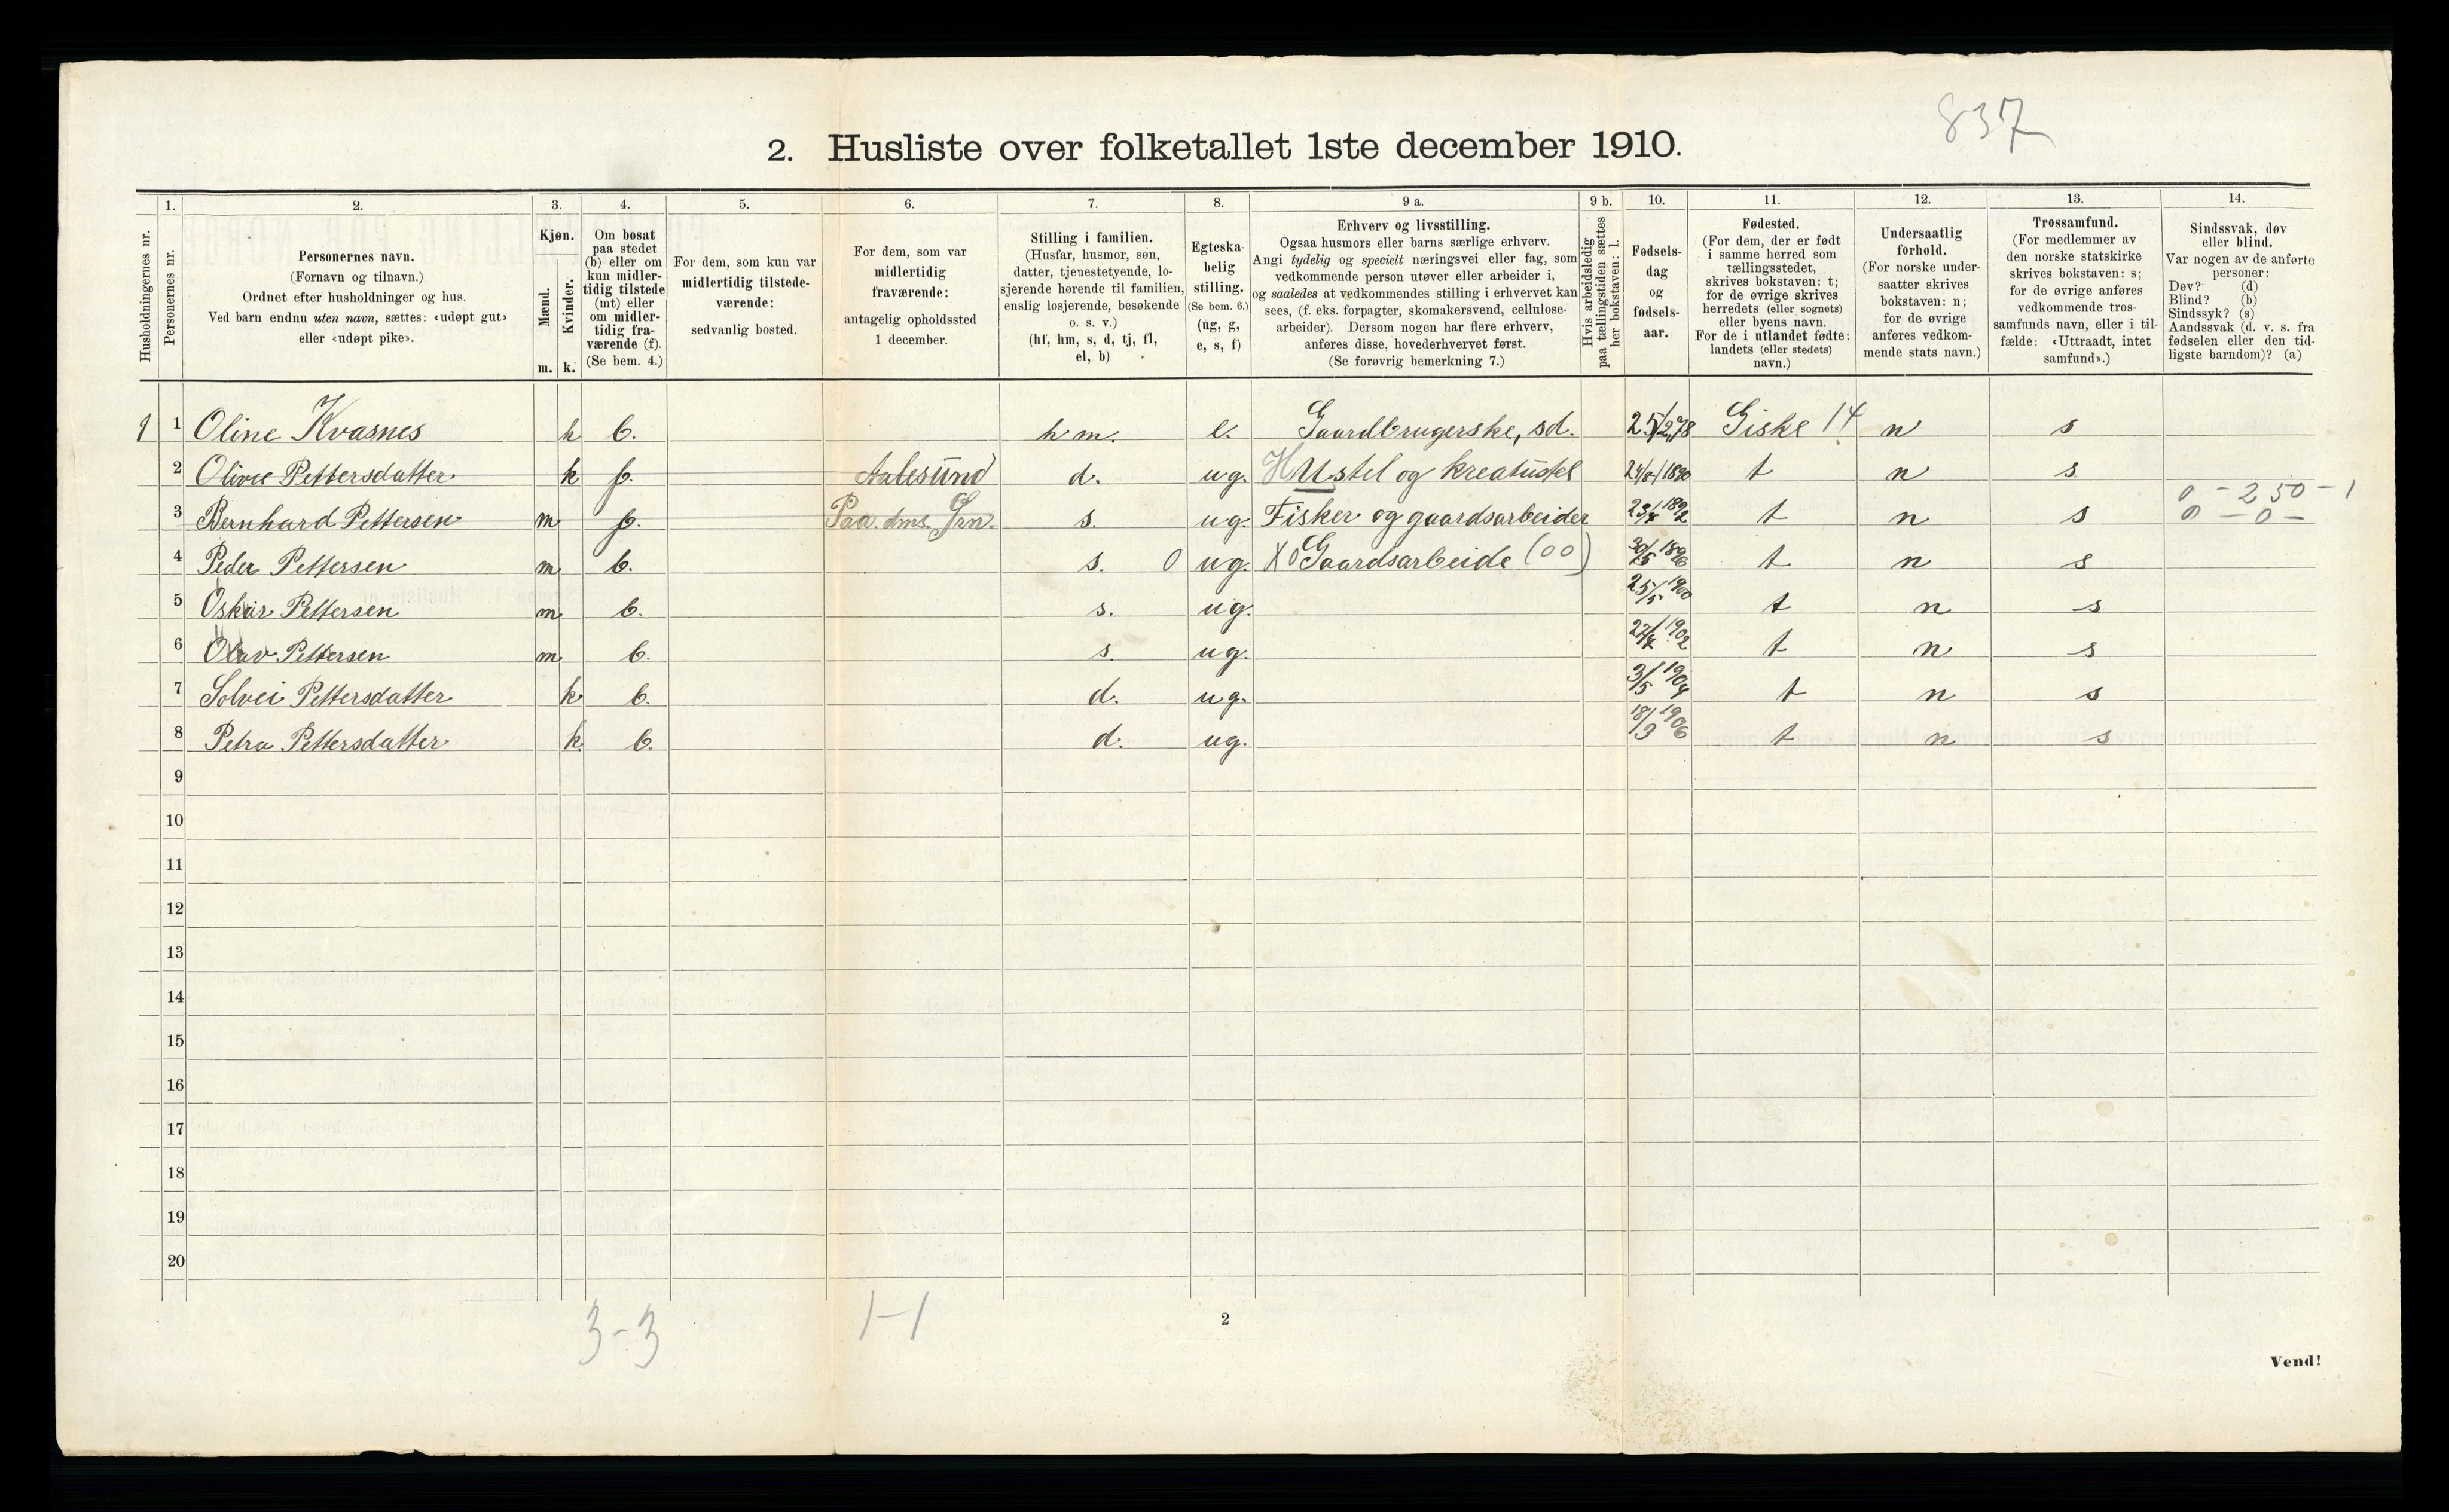 837
2. Husliste over folketallet 1ste december 1910.
Husholdningernes nr.
1. Personernes nr.
2.
Personernes navn.
(Fornavn og tilnavn.)
Ordnet efter husholdninger og hus.
Ved barn endnu uten navn, sættes: «udøpt gut»
eller «udøpt pike».
3.
Kjøn.
Mænd.
Kvinder.
m. k.
4.
Om bosat
paa stedet
(b) eller om
kun midler-
tidig tilstede
(mt) eller
om midler-
tidig fra-
værende (f).
(Se bem. 4.)
5.
For dem, som kun var
midlertidig tilstede-
værende:
sedvanlig bosted.
6.
For dem, som var
midlertidig
fraværende:
antagelig opholdssted
1 december.
7.
Stilling i familien.
(Husfar, husmor, søn,
datter, tjenestetyende, lo-
sjerende hørende til familien,
enslig losjerende, besøkende
o. s. v.)
(hf, hm, s, d, tj, fl,
el, b)
8.
Egteska-
belig
stilling.
(Se bem. 6.)
(ug, g,
e, s, f)
9 a.
Erhverv og livsstilling.
Ogsaa husmors eller barns særlige erhverv.
Angi tydelig og specielt næringsvei eller fag, som
vedkommende person utøver eller arbeider i,
og saaledes at vedkommendes stilling i erhvervet kan
sees, (f. eks. forpagter, skomakersvend, cellulose-
arbeider). Dersom nogen har flere erhverv,
anføres disse, hovederhvervet først.
(Se forøvrig bemerkning 7.)
9 b.
Hvis arbeidsledig
paa tællingstiden sættes
her bokstaven: l.
10.
Fødsels-
dag
og
fødsels-
aar.
11.
Fødested.
(For dem, der er født
i samme herred som
tællingsstedet,
skrives bokstaven: t;
for de øvrige skrives
herredets (eller sognets)
eller byens navn.
For de i utlandet fødte:
landets (eller stedets)
navn.)
12.
Undersaatlig
forhold.
(For norske under-
saatter skrives
bokstaven: n;
for de øvrige
anføres vedkom-
mende stats navn.)
13.
Trossamfund.
(For medlemmer av
den norske statskirke
skrives bokstaven: s;
for de øvrige anføres
vedkommende tros-
samfunds navn, eller i til-
fælde: «Uttraadt, intet
samfund».)
14.
Sindssvak, døv
eller blind.
Var nogen av de anførte
personer:
Døv? (d)
Blind? (b)
Sindssyk? (s)
Aandssvak (d. v. s. fra
fødselen eller den tid-
ligste barndom)? (a)
1 1 Oline Kvasnes k b. hm. e. Gaardbrugerske, sd. Giske 14 n s
2 Pettersdatter k f. Aalesund d. ug. HUstel og kreatustel 1890 t n s
3 Bernhard Pettersen m f. Paa dms. s. ug. Fisker og gaardsarbeider 1892 t n s 0 - 250 - 1
0 - 0 -
4 Peder Pettersen m b. s. 0 ug. X0 Gaardsarbeide (00) 30/5 1896 t n s
5 Oskar Pettersen m b. s. ug. 25/5 1900 t n s
6 Olav Pettersen m b. s. ug. 1902 t n s
7 Solvei Pettersdatter k b. d. ug. 3/5 1904 t n s
8 Petra Pettersdatter k. b. d. ug. 18/3 1906 t n s
9
10
11
12
13
14
15
16
17
18
19
20
3-3 1-1
2
Vend!